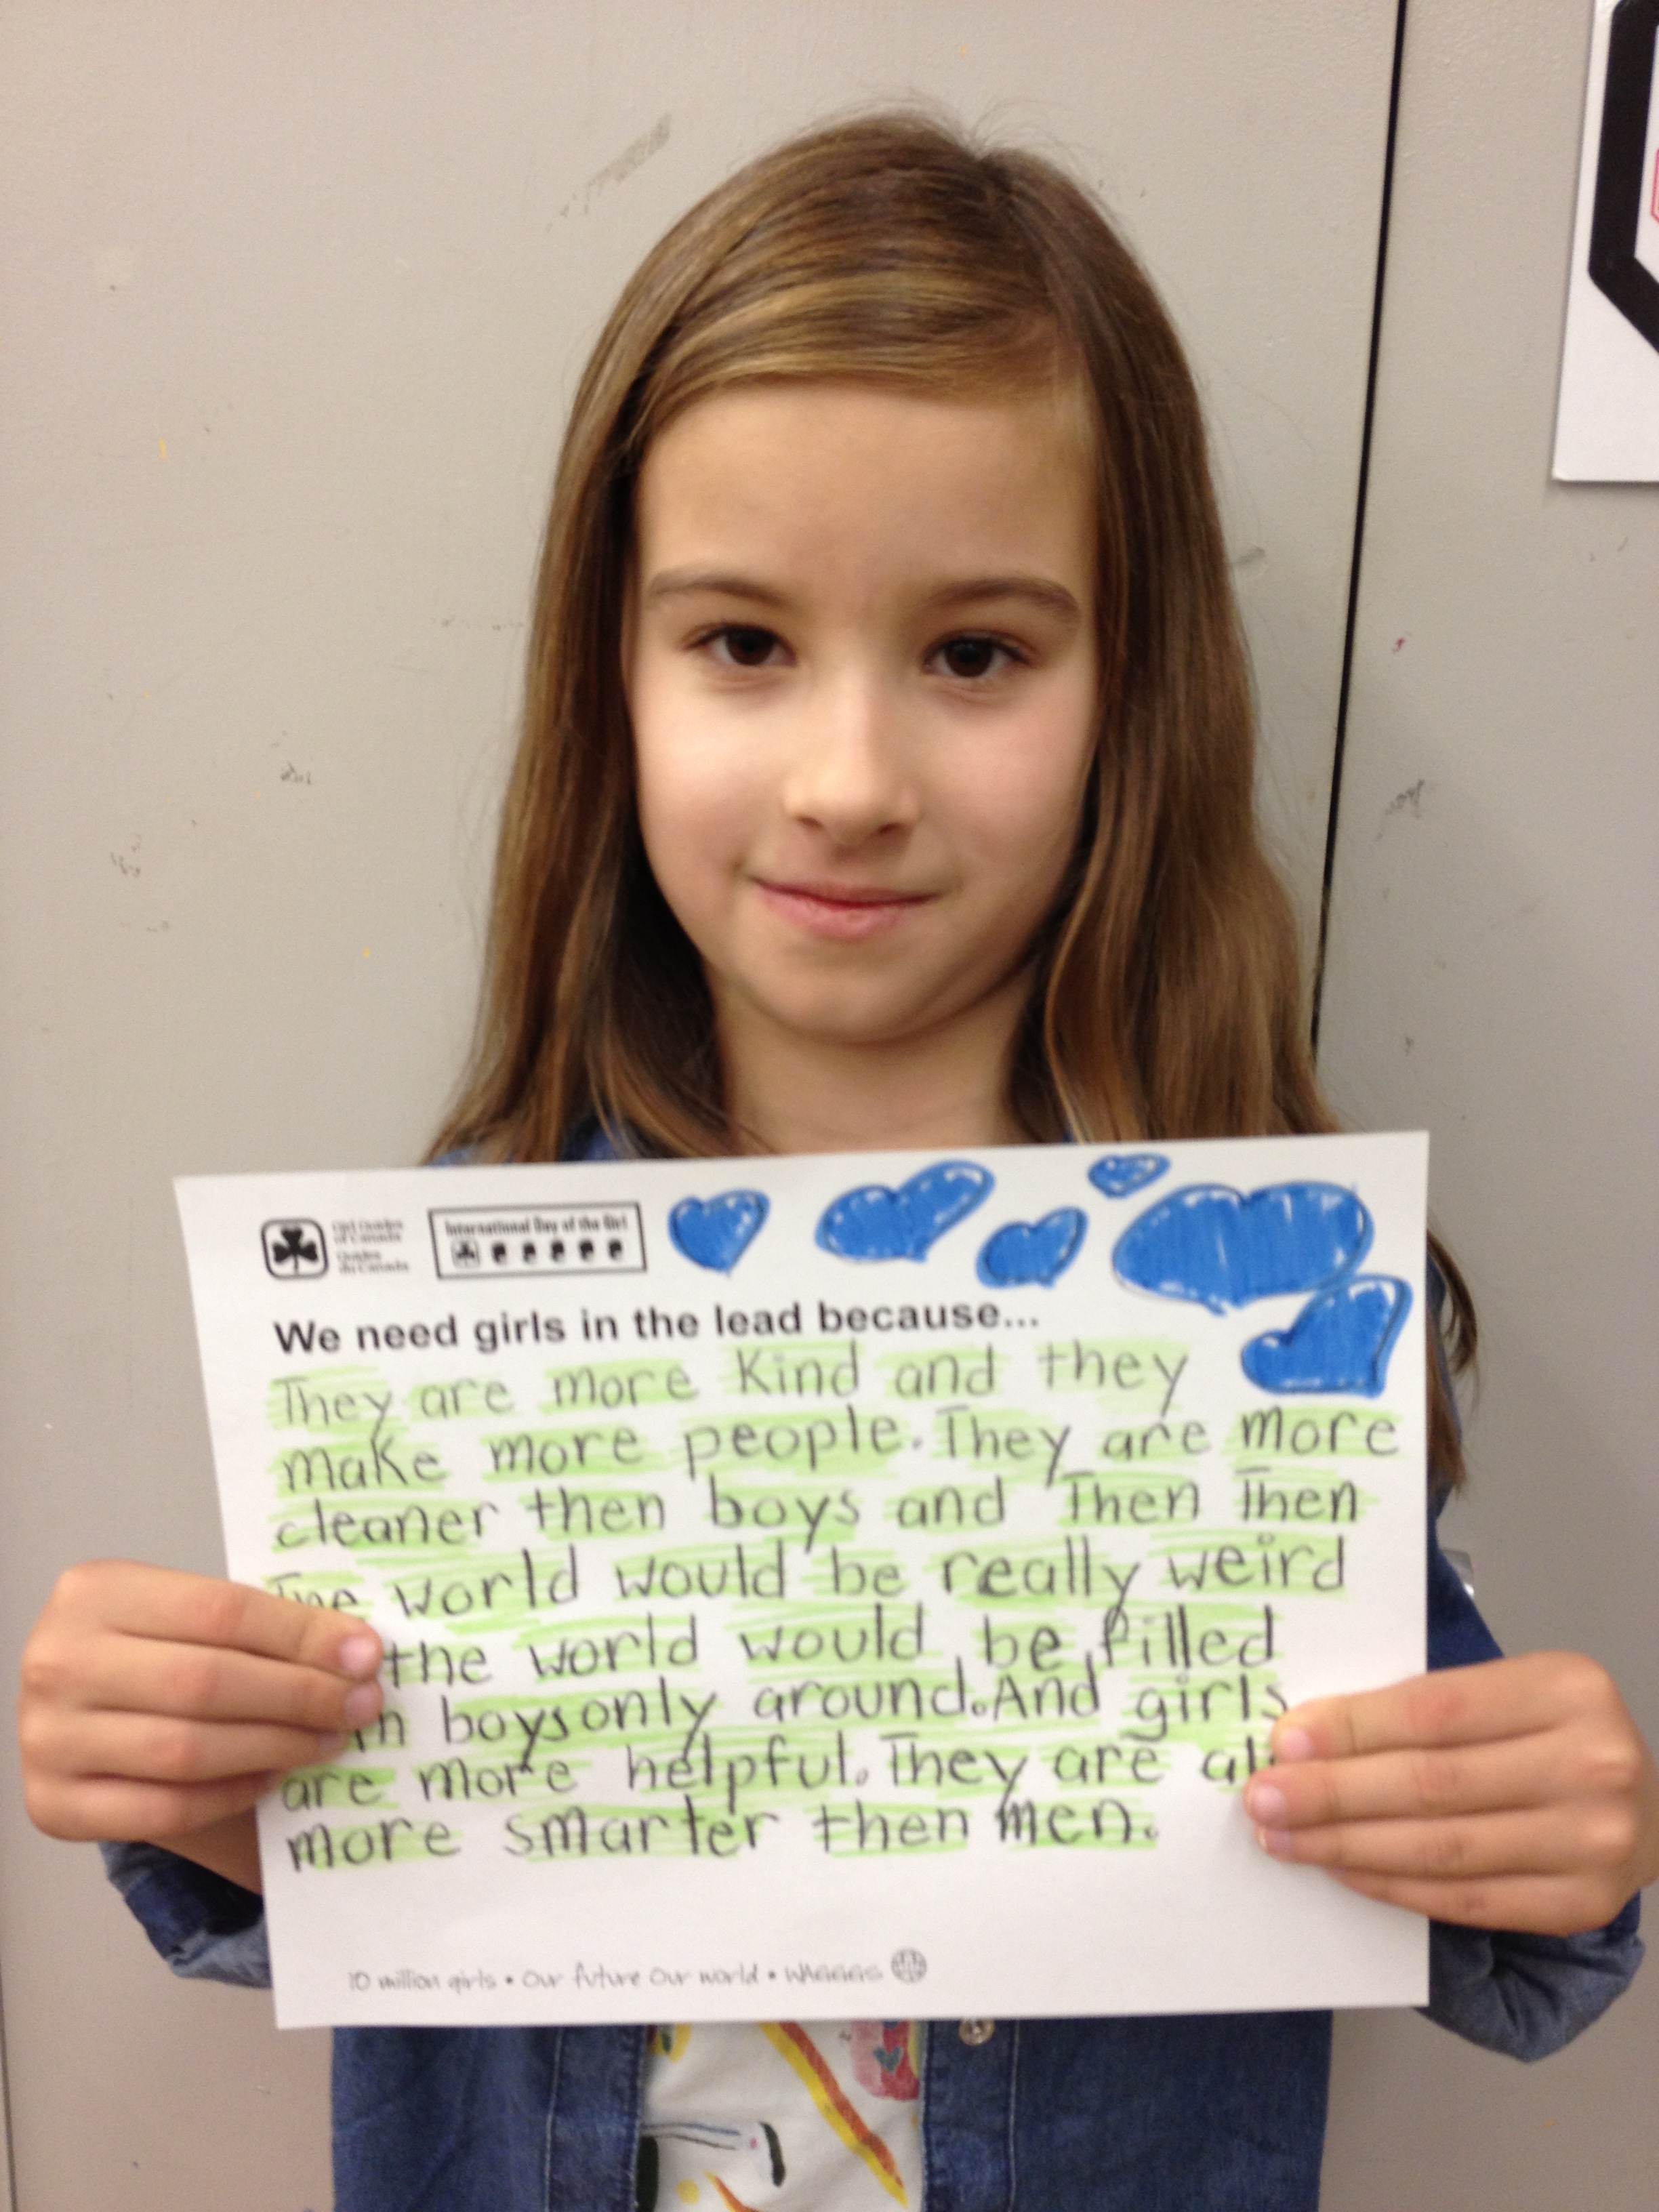 Girl Guides
of Canada
Guides
du Canada
International Day of the Girl
We need girls in the lead because...
They are more Kind and they
make more people. They are more
cleaner then boys and Then Then
The world would be really weird
the world would be filled
in boys only around. And girls
are more helpful. They are
more smarter then men.
10 million girls • Our future Our world • WAGGGS